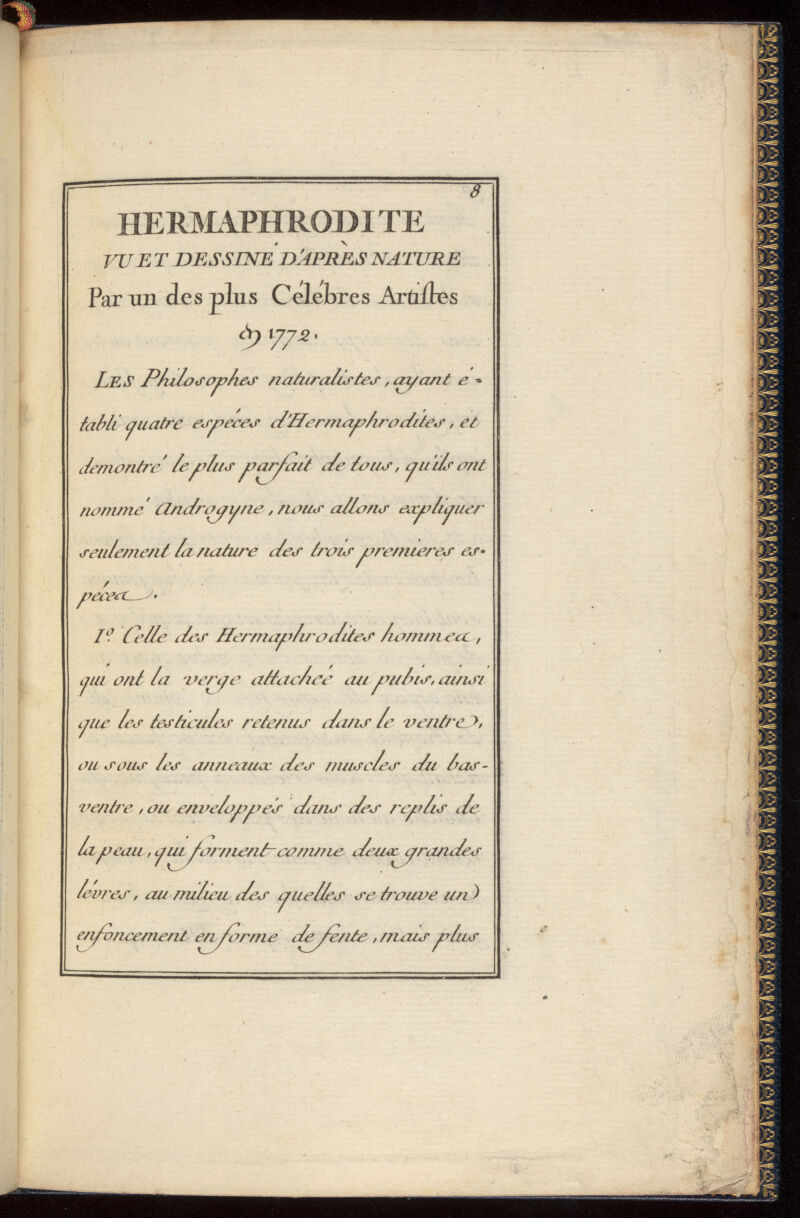 8
HERMAPHRODITE
VU ET DESSINÉ D'APRÈS NATURE
Par un des plus Célébres Artistes
1772.
LES Philosophes naturalistes, ayant é-
tabli quatre espéces d'Hermaphrodites, et
demontré le plus parfait de tous, qu'ils ont
nommé Androgyne, nous allons expliquer
seulement la nature des trois premieres es-
péces.
I.º Celle des Hermaphrodites hommes,
qui ont la verge attacheé au pubis, ainsi
que les testicules retenus dans le ventre,
ou sous les anneaux des muscles du bas-
ventre, ou enveloppés dans des replis de
la peau, qui forment comme deux grandes
lévres, au milieu des quelles se trouve un
enfoncement en forme de fente, mais plus